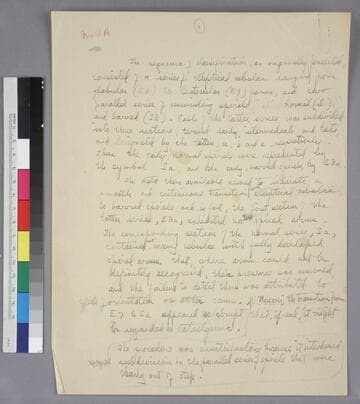 1
The sequence of classification, as originally presented,
consisted of a series of elliptical nebulae ranging from
globular (E0) to lenticular (E7) forms, and two
parallel series of unwinding spirals, normal (S)
and barred (SB). Each of the latter series was subdivided
into three sections, termed early, intermediate and late,
and designated by the letters a, b and c, respectively.
Thus the early normal spirals were represented by
the symbol Sa and the early barred spirals by SBa.
The data then available seemed to indicate a
smooth and continuous transition from elliptical nebulae
to barred spirals, and the first section of the
latter series, SBa, exhibited no spiral arms.
The corresponding section of the normal series, Sa,
contained many nebulae with fully developed
spiral arms, and where arms could not be
definitely recognized, their presence was assumed
and the failure to detect them was attributed to
orientation or other causes. However, the transition from
E7 to Sa appeared so abrupt that, if real, it might
be regarded as cataclysmic.
The procedure was unsatisfactory because it introduced
subdivisions in the parallel series of spirals that were
clearly out of step.